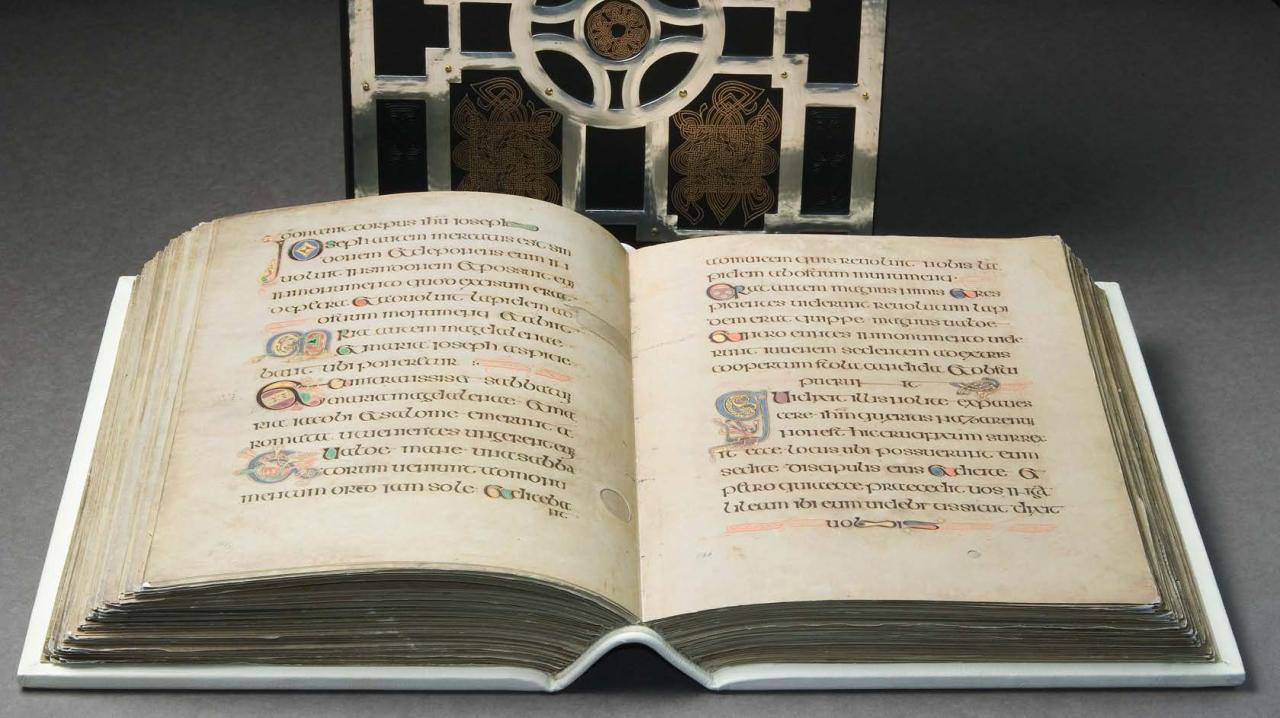 donauit corpus ihu ioseph
Ioseph autem mercatus est sin
donem & deponens eum in
uoluit in sindonem & possuit eu
in monumento quod excisum erat
de petra & aduoluit lapidem ad
ostium monumenti & abiit
Maria autem magdalenae
& maria ioseph aspicie
bant ubi poneretur
Et cum transisset sabbatum
maria magdalenae & ma
ria iacobi & salome emerunt a
romata ut uenientes ungerent eu
& ualde mane una sabba
torum ueniunt ad monu
mentum orto iam sole & diceba
nt
ad inuicem quis reuoluit nobis la
pidem ab ostium monumenti
Erat autem magnus nimis & res
picientes uiderunt reuolutum lapi
dem erat quippe magnus ualde
& intro euntes in monumento uide
runt iuuenem sedentem ad extris
coopertum stola candida & obstu
puerunt
Qui dixit illis nolite expaues
cere ihm queritis nazarenum
non est hic crucifixum surrex
it ecce locus ubi possuerunt eum
sed ite discipulis eius & dicite &
petro quia ecce praecedit uos in ga
lileam ibi eum uidebitis sicut dixit
uobis